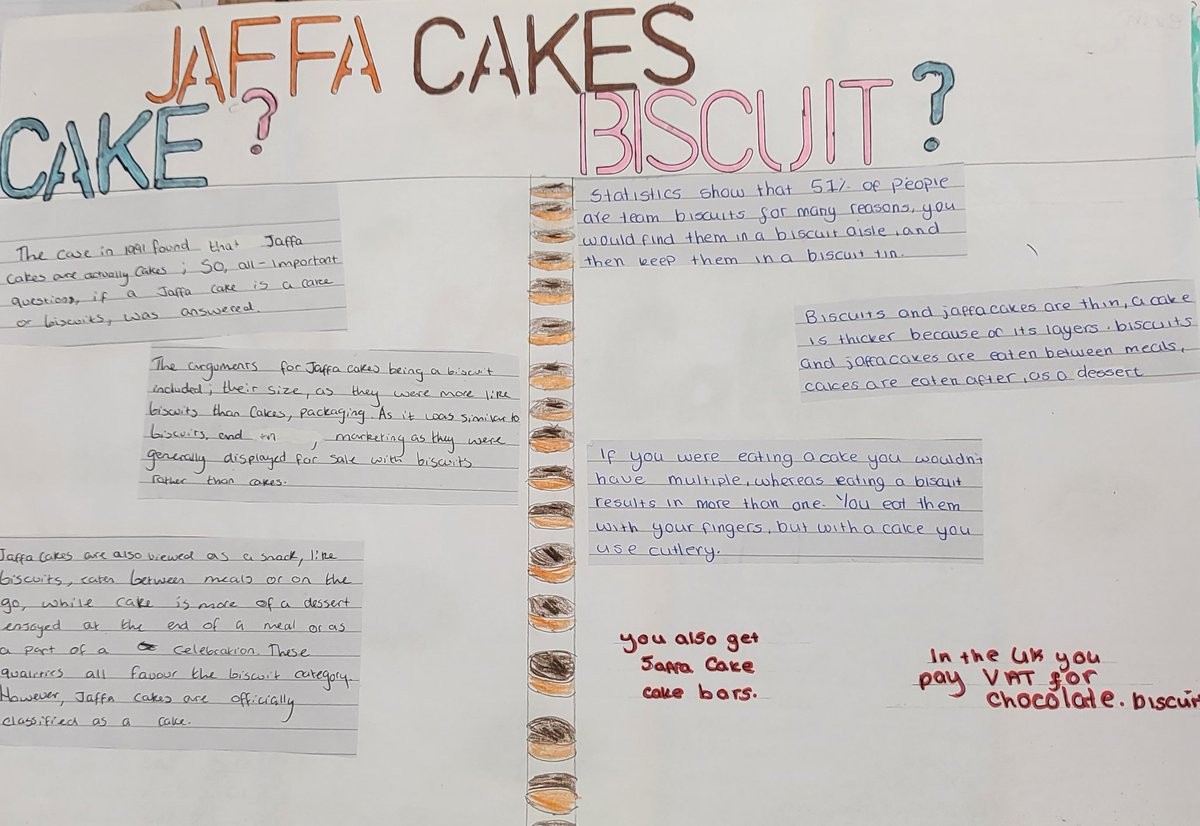 JAFFA CAKES
CAKE ?
BISCUIT ?
The case in 1991 found that Jaffa
cakes are actually cakes ; SO, all-important
questions, if a Jaffa cake is a cake
or biscuits, was answered.
The arguments for Jaffa cakes being a biscuit
included; their size, as they were more like
biscuits than cakes, packaging. As it was similar to
biscuits, and , marketing as they were
generally displayed for sale with biscuits
rather than cakes.
Jaffa cakes are also viewed as a snack, like
biscuits, eaten between meals or on the
go, while cake is more of a dessert
enjoyed at the end of a meal or as
a part of a celebration. These
qualities all favour the biscuit category.
However, Jaffa cakes are officially
classified as a cake.
Statistics show that 51% of people
are team biscuits for many reasons, you
would find them in a biscuit aisle, and
then keep them in a biscuit tin.
Biscuits and jaffacakes are thin, a cake
is thicker because of its layers. biscuits
and jaffacakes are eaten between meals,
cakes are eaten after, as a dessert
If you were eating a cake you wouldn't
have multiple, whereas eating a biscuit
results in more than one. You eat them
with your fingers, but with a cake you
use cutlery.
you also get
Jaffa Cake
cake bars.
In the UK you
pay VAT for
chocolate. biscuit